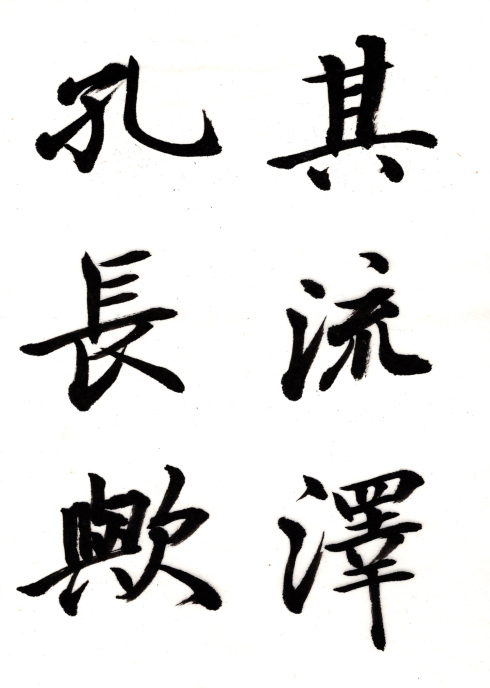 其流澤
孔長歟